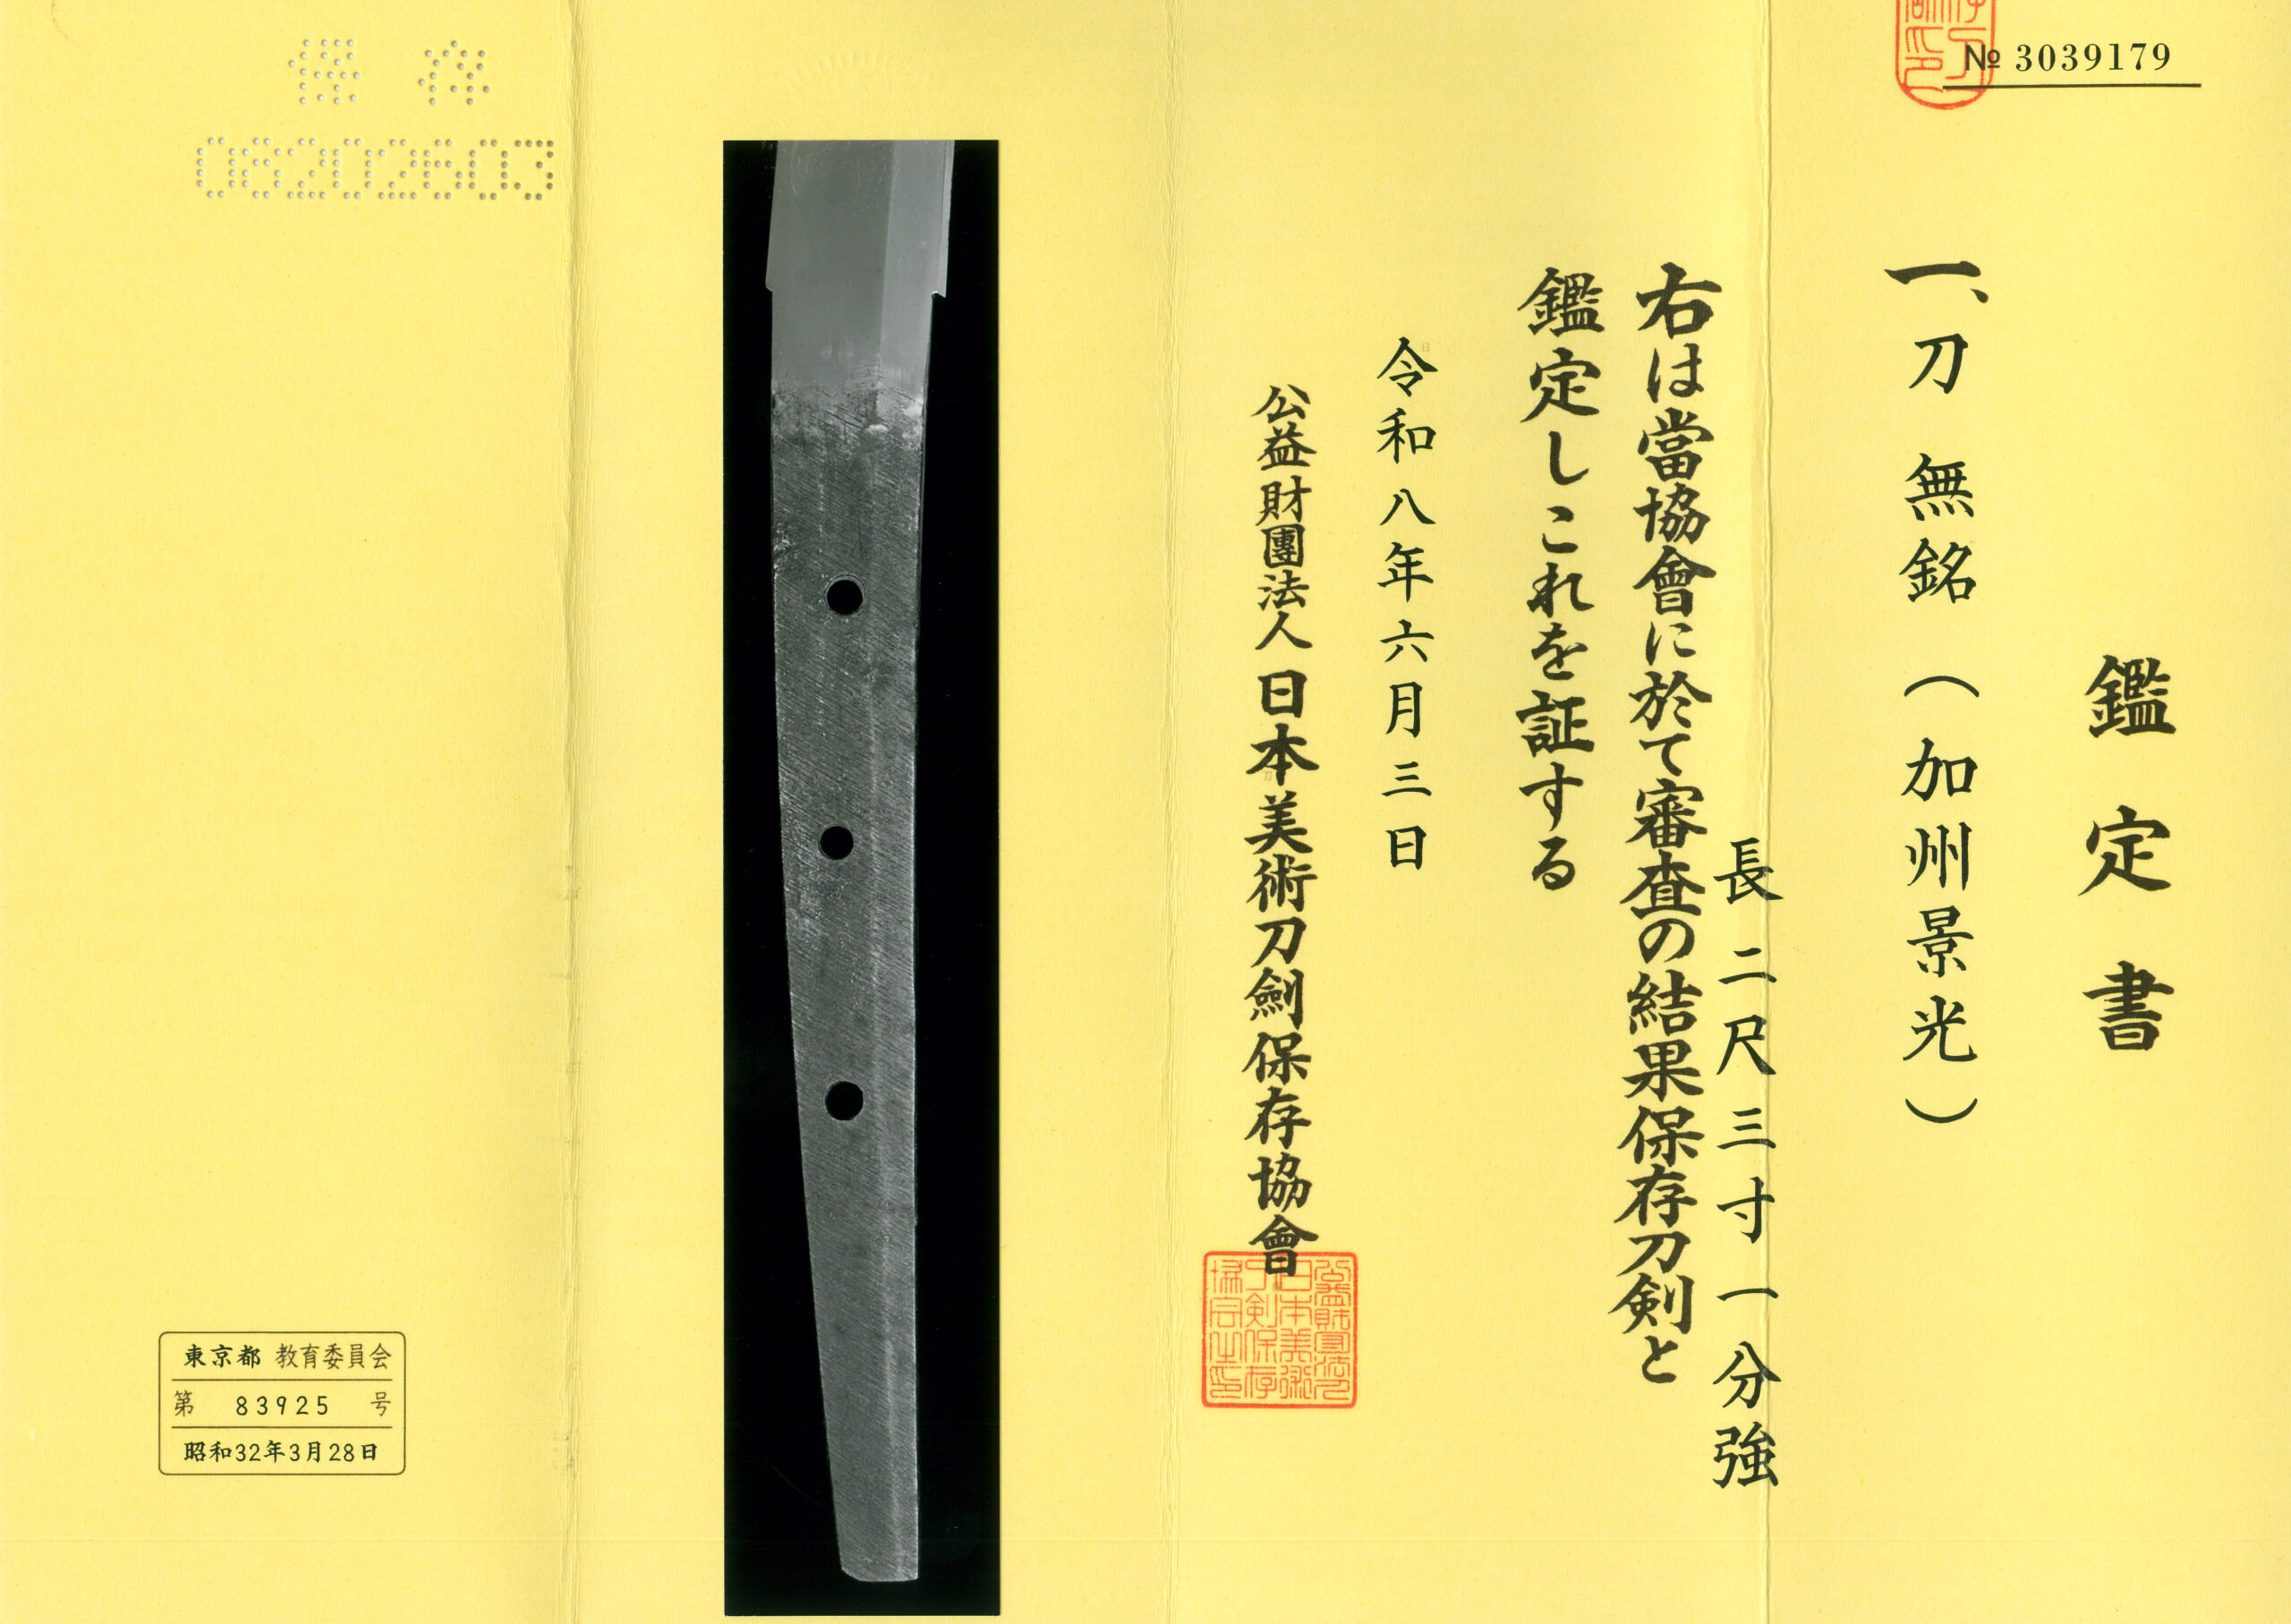 № 3039179
鑑定書
一、刀 無銘(加州景光)
長 二尺三寸一分強
右は當協會に於て審査の結果保存刀剣と
鑑定しこれを証する
令和八年六月三日
公益財團法人 日本美術刀劍保存協會
保存
06202603
東京都 教育委員会
第 83925 号
昭和32年3月28日